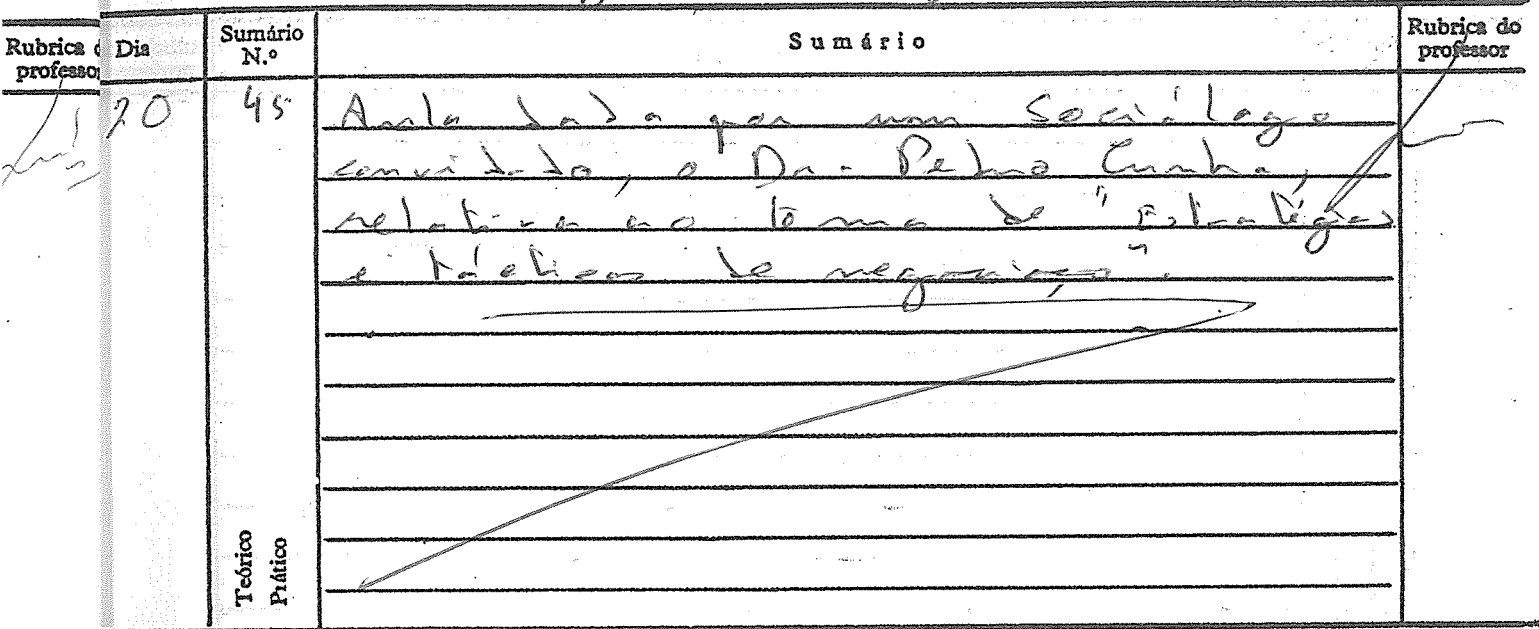 Rubrica d professor
Dia
Sumário N.º
Sumário
Rubrica do professor
20
45
Aula dada por um Sociólogo
convidado, o Dr. Pedro Cunha,
relativa ao tema de "Estratégias
e tácticas de negociação".
Teórico
Prático